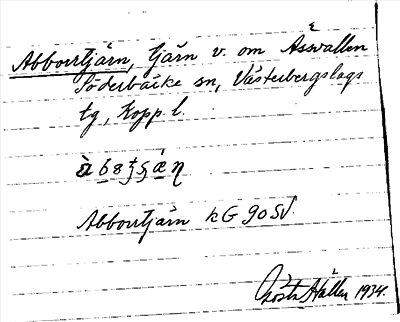 Abborrtjärn, tjärn v. om Åsvallen
Söderbärke sn, Västerbergslags
tg, Kopp. l.
Abborrtjärn kG 90 SV.
Gösta Hallin 1934.